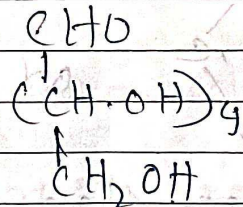 CHO
(CH·OH)4
CH2OH